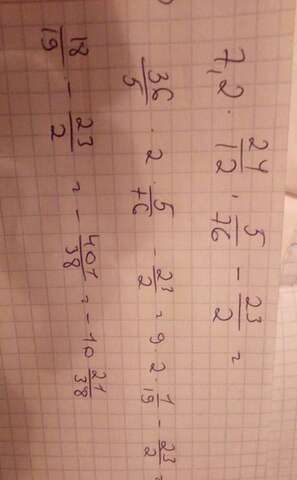 7,2 · 24/12 · 5/76 - 23/2 =
36/5 · 2 · 5/76 - 23/2 = 9 · 2 · 1/19 - 23/2 =
18/19 - 23/2 = - 401/38 = -10 21/38